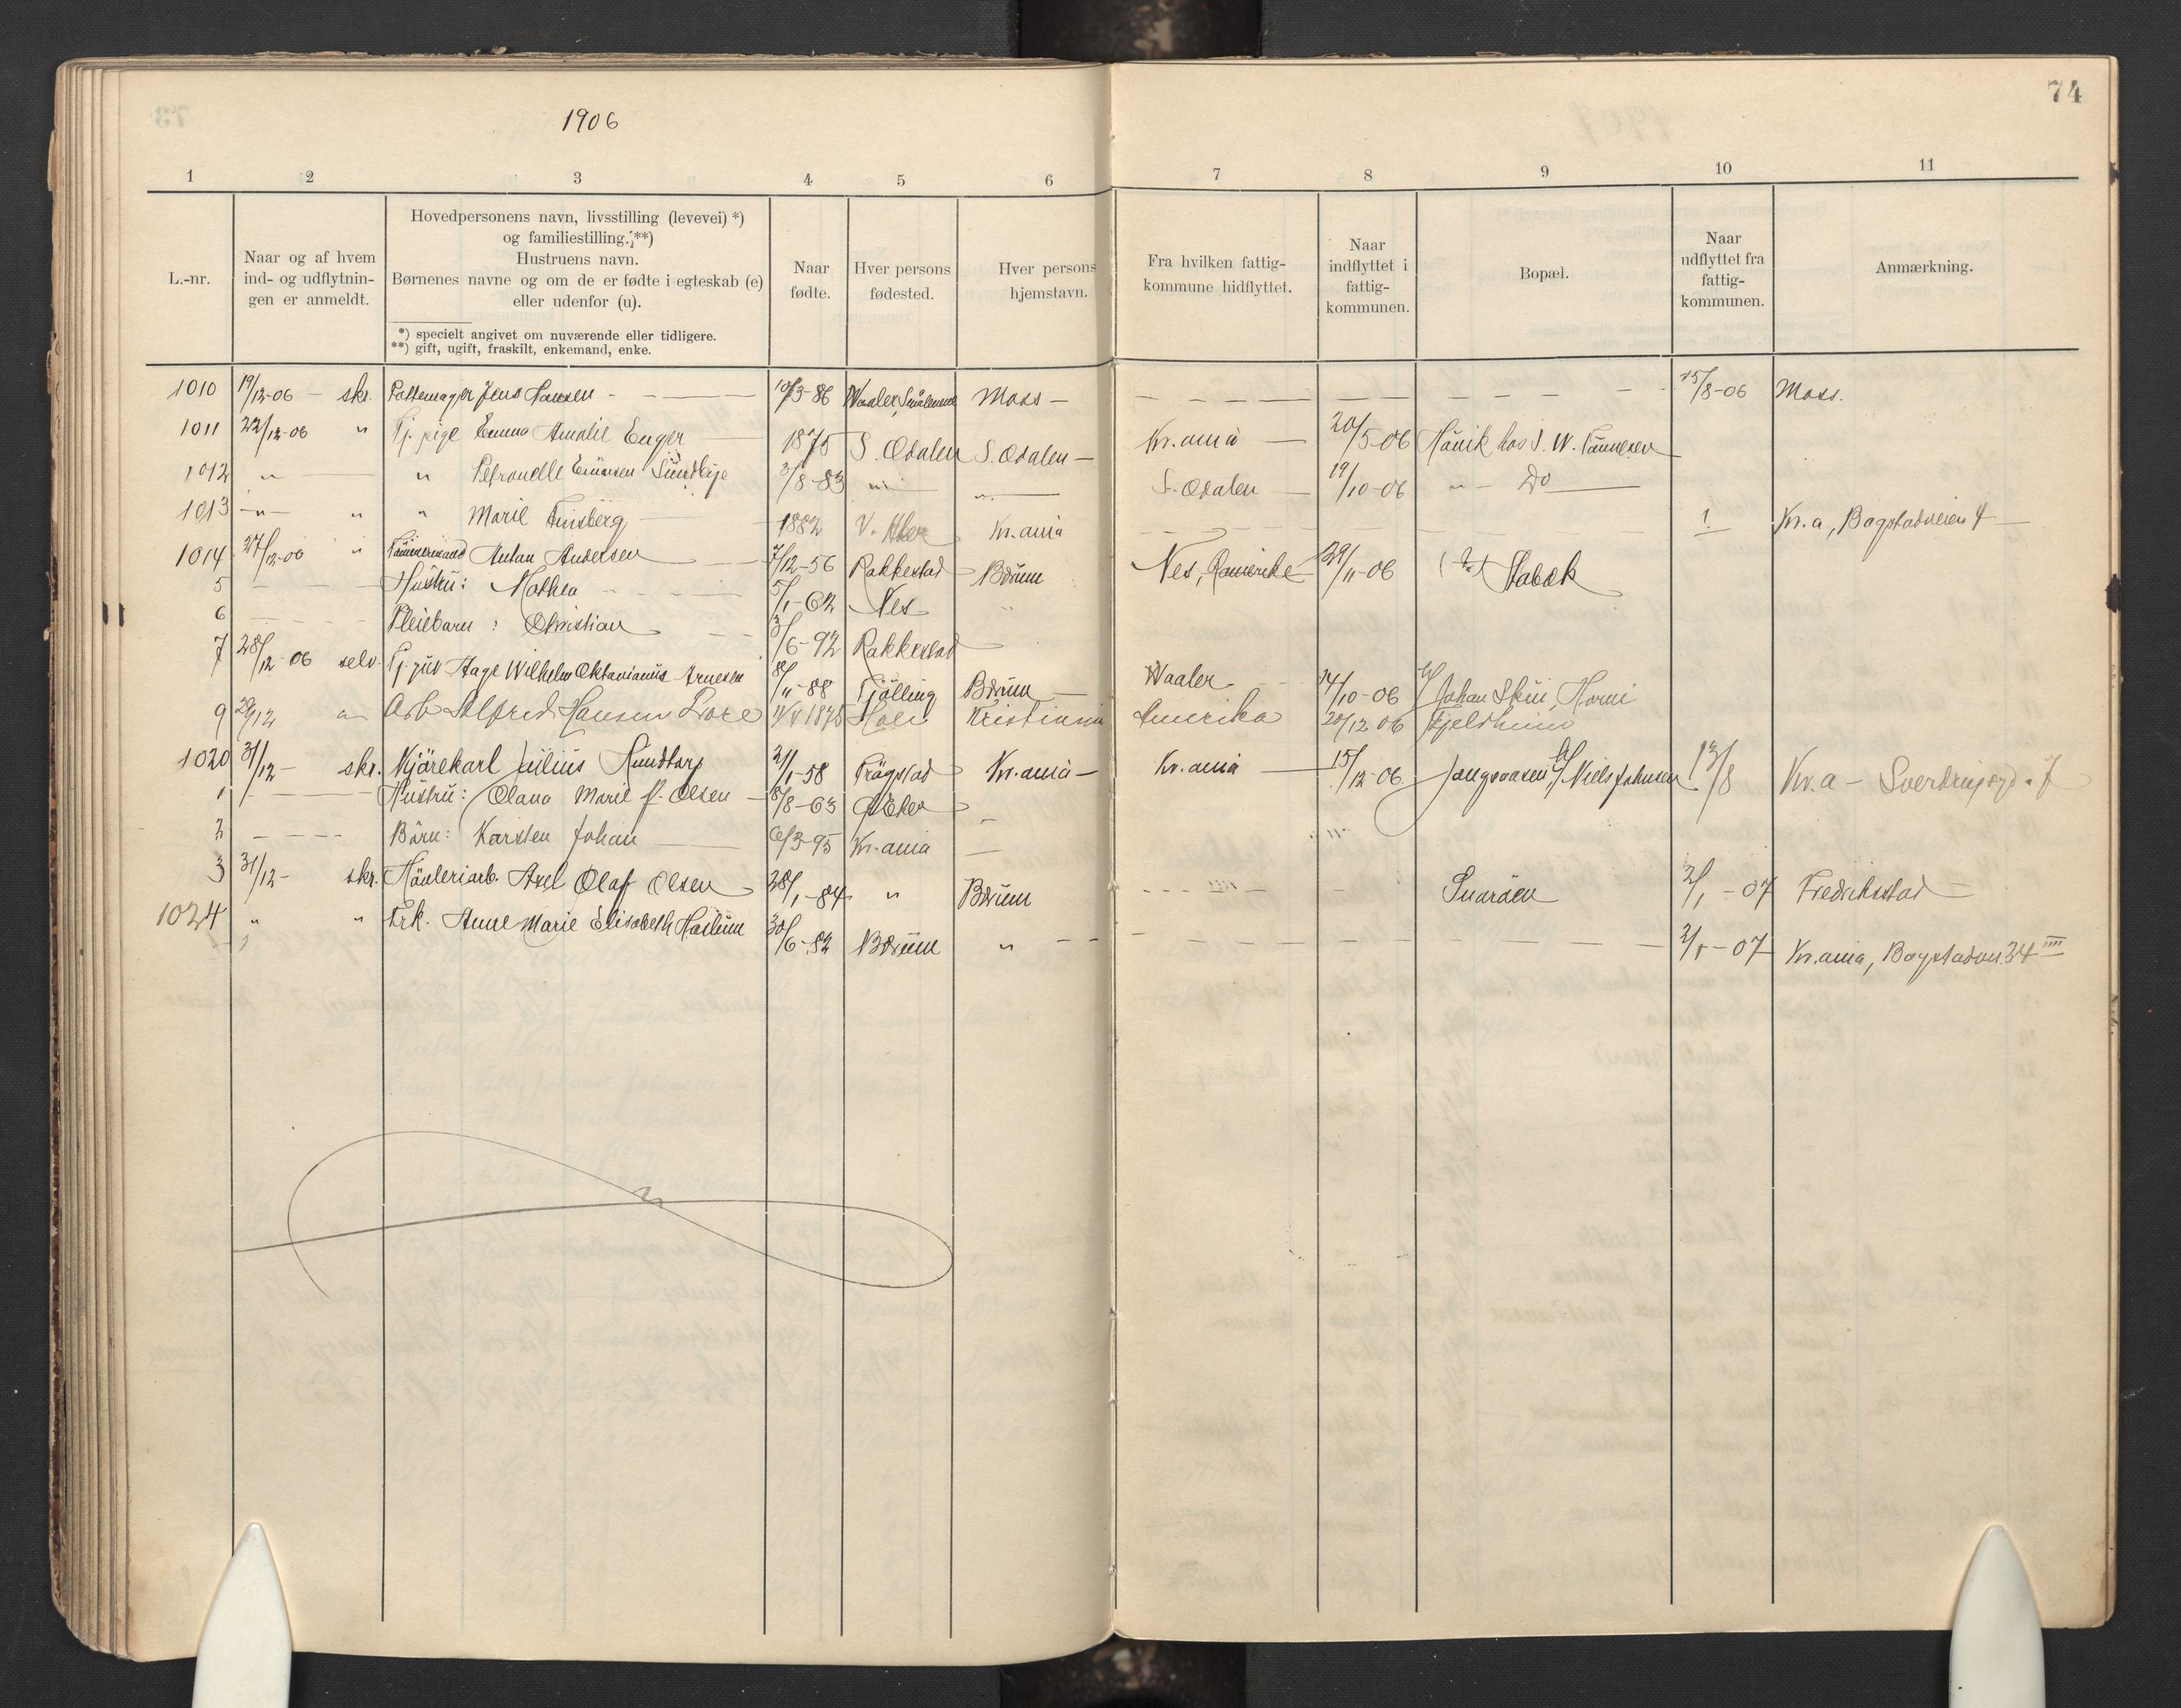 74
1906
1 2 3 4 5 6 7 8 9 10 11
L.-nr.
Naar og af hvem
ind- og udflytnin-
gen er anmeldt.
Hovedpersonens navn, livsstilling (levevei) *)
og familiestilling. **)
Hustruens navn.
Børnenes navne og om de er fødte i egteskab (e)
eller udenfor (u).
*) specielt angivet om nuværende eller tidligere.
**) gift, ugift, fraskilt, enkemand, enke.
Naar
fødte.
Hver persons
fødested.
Hver persons
hjemstavn.
Fra hvilken fattig-
kommune hidflyttet.
Naar
indflyttet i
fattig-
kommunen.
Bopæl.
Naar
udflyttet fra
fattig-
kommunen.
Anmærkning.
1010 19/12-06 - skr. Jens Hansen - 10/3-86 Waaler, Smålenene Moss - 15/8-06 Moss.
1011 22/12-06 " Tj. pige Emma Amalie Enger 1875 S. Odalen S. Odalen - Kr.ania - 20/5-06 Høvik hos S. W.
1012 " " Petronelle 3/8-83 " " S. Odalen - 19/10-06 " - Do
1013 -"- " " Marie 1882 V. Aker Kr.ania Kr.a, Bogstadveien 4
1014 27/12-06 " Tømmermand Anton Andersen 7/12-56 Rakkestad Bærum Nes, Romerike 29/11-06 Stabæk
5 Hustru: Mathea 5/1-62 Nes "
6 Pleiebarn: Christian 3/6-92 Rakkestad
7 28/12 06 selv. Tj. gut Aage Wilhelm Oktavianus Arnesen 8/11-88 Tjølling Bærum Waaler 14/10-06 Johan Skui, Horni
9 29/12 Arb Alfred Hansen 1875 Hole Kristiania Amerika 20/12 06 Fjeldheim
1020 31/12- skr. Kjørekarl Julius 21/1-58 Trøgstad Kr.ania - Kr.ania 15/12-06 Niels Johnsen 13/8 Kr.a - Sverdrupsgd. 7
1 Hustru: Olana Marie f. Olsen - 8/8-63 -
2 Børn: Karsten Johan 6/3-95 Kr.ania - "
3 31/12- skr. Høvleriarb. Axel Olaf Olsen 28/1-84 " Bærum Snarøen 2/1-07 Fredrikstad -
1024 " " Frk. Anne Marie Elisabeth 30/6-82 Bærum " 2/1-07 Kr.ania, Bogstadvn. 34 IIII